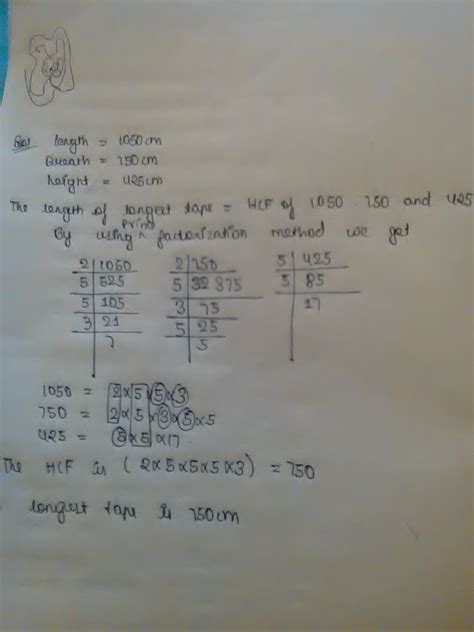 Sol length = 1050cm
Breath = 750cm
height = 425cm
The length of longest tape = HCF of 1050 750 and 425
By using prime factorization method we get
2 | 1050
5 | 525
5 | 105
3 | 21
7
2 | 750
5 | 32 375
3 | 75
5 | 25
5
5 | 425
5 | 85
17
1050 = 2×5×5×3
750 = 2×5×3×5×5
425 = 5×5×17
The HCF is (2×5×5×5×3) = 750
longest tape is 750cm